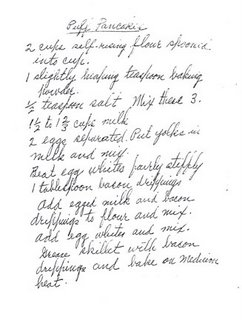 Puff Pancakes
2 cups self-rising flour spooned
into cup.
1 slightly heaping teaspoon baking
powder.
½ teaspoon salt Mix these 3.
1½ to 1¾ cups milk
2 eggs separated. Put yolks in
milk and mix.
Beat egg whites fairly stiffly
1 tablespoon bacon drippings
Add egged milk and bacon
drippings to flour and mix.
Add egg whites and mix.
Grease skillet with bacon
drippings and bake on medium
heat.